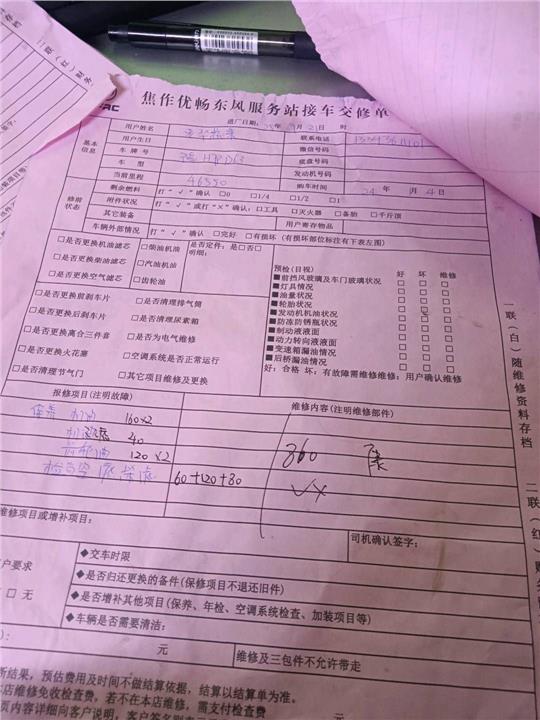 焦作优畅东风服务站接车交修单
进厂日期: 年 月21日 时
基本信息
用户姓名
联系电话
用户生日
微信号码
车牌号
底盘号码
车型
发动机号码
当前里程 46350
购车时间 24年 月4日
修前状态
剩余燃料 打“√”确认 □0 □1/4 □1/2 □1
附件状况 打“√”或打“×”确认:□工具 □灭火器 □备胎 □千斤顶
其它装备
用户寄存物品
车辆外部情况 打“√”确认 □完好 □有损坏(有损坏部位标注有下表左图)
□是否更换机油滤芯 □柴油机油 是否定件:是□否□
明细:
□是否更换柴油滤芯 □汽油机油
□是否更换空气滤芯 □齿轮油
□是否更换前刹车片 □是否清理排气筒
□是否更换后刹车片 □是否清理尿素箱
□是否更换离合三件套 □是否为电气维修
□是否更换火花塞 □空调系统是否正常运行
□是否清理节气门 □其它项目维修及更换
预检(目视) 好 坏 维修
■前挡风玻璃及车门玻璃状况 □ □ □
■灯具情况 □ □ □
■油量状况 □ □ □
■轮胎状况 □ □ □
■发动机机油状况 □ □ □
■防冻防锈瓶状况 □ □ □
■制动液液面 □ □ □
■动力转向液液面 □ □ □
■变速箱漏油情况 □ □ □
■后桥漏油情况 □ □ □
好:合格 坏:有故障需维修维修:用户确认维修
报修项目(注明故障)
维修内容(注明维修部件)
保养 机油 160×2
机滤 40
120×2
60+120+80
860
维修项目或增补项目:
司机确认签字:
户要求
□无
◆交车时限
◆是否归还更换的备件(保修项目不退还旧件)
◆是否增补其他项目(保养、年检、空调系统检查、加装项目等)
◆车辆是否需要清洁:
): 元
元
维修及三包件不允许带走
断结果,预估费用及时间不做结算依据,结算以结算单为准。
本店维修免收检查费,若不在本店维修,需支付检查费
页内容详细向客户说明,客户签名则表
一联(白)随维修资料存档
二联(红)财
三联(红)财务